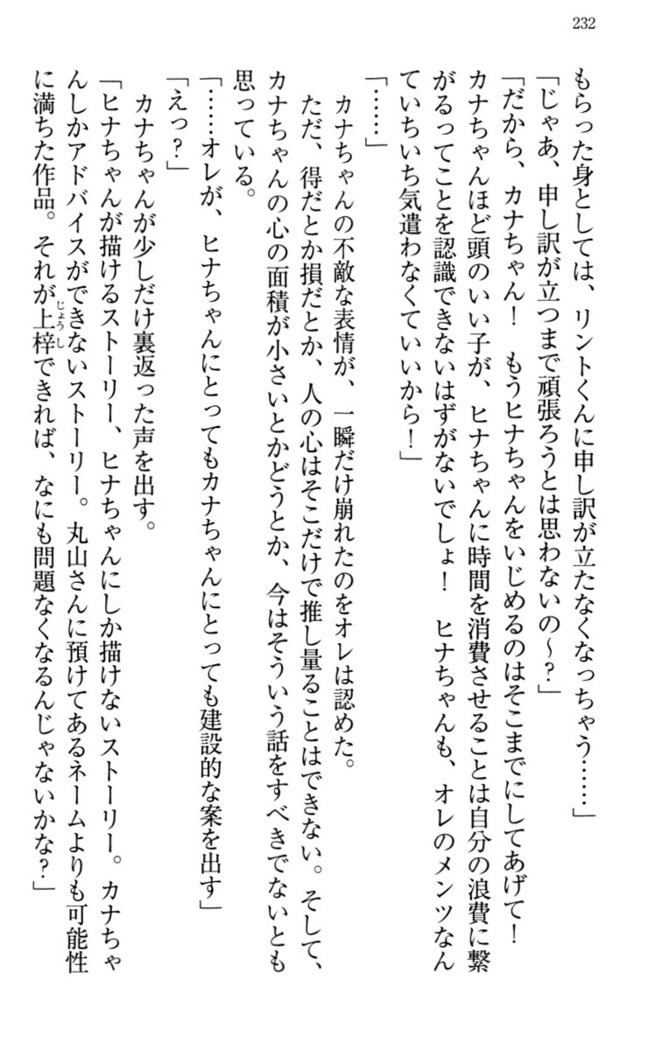 232
もらった身としては、リントくんに申し訳が立たなくなっちゃう……」
「じゃあ、申し訳が立つまで頑張ろうとは思わないの～?」
「だから、カナちゃん!　もうヒナちゃんをいじめるのはそこまでにしてあげて!
カナちゃんほど頭のいい子が、ヒナちゃんに時間を消費させることは自分の浪費に繋
がるってことを認識できないはずがないでしょ!　ヒナちゃんも、オレのメンツなん
ていちいち気遣わなくていいから!」
「……」
　カナちゃんの不敵な表情が、一瞬だけ崩れたのをオレは認めた。
　ただ、得だとか損だとか、人の心はそこだけで推し量ることはできない。そして、
カナちゃんの心の面積が小さいとかどうとか、今はそういう話をすべきでないとも
思っている。
「……オレが、ヒナちゃんにとってもカナちゃんにとっても建設的な案を出す」
「えっ?」
　カナちゃんが少しだけ裏返った声を出す。
「ヒナちゃんが描けるストーリー、ヒナちゃんにしか描けないストーリー。カナちゃ
んしかアドバイスができないストーリー。丸山さんに預けてあるネームよりも可能性
に満ちた作品。それが上梓じょうしできれば、なにも問題なくなるんじゃないかな?」